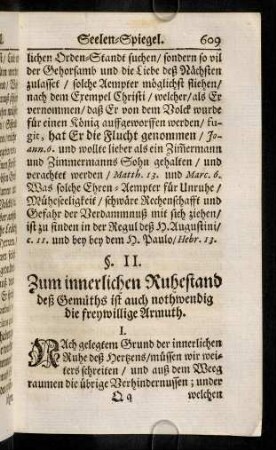 Seelen-Spiegel. 609
lichen Orden-Stande suchen/ sondern so vil
der Gehorsamb und die Liebe deß Nächsten
zulasset / solche Aempter möglichst fliehen/
nach dem Exempel Christi / welcher/ als Er
vernommen/ daß Er von dem Volck wurde
für einen König auffgeworffen werden/ sa-
git, hat Er die Flucht genommen / Jo-
ann. 6. und wollte lieber als ein Zimermann
und Zimmermanns Sohn gehalten / und
verachtet werden / Matth. 13. und Marc. 6.
Was solche Ehren-Aempter für Unruhe/
Müheseeligkeit / schwäre Rechenschafft und
Gefahr der Verdammnuß mit sich ziehen/
ist zu finden in der Regul deß H. Augustini/
c. 11. und bey bey dem H. Paulo/ Hebr. 13.
§. II.
Zum innerlichen Ruhestand
deß Gemüths ist auch nothwendig
die freywillige Armuth.
I.
NAch gelegtem Grund der innerlichen
Ruhe deß Hertzens/ müssen wir wei-
ters schreiten / und auß dem Weeg
raumen die übrige Verhindernussen; under
Q q welchen